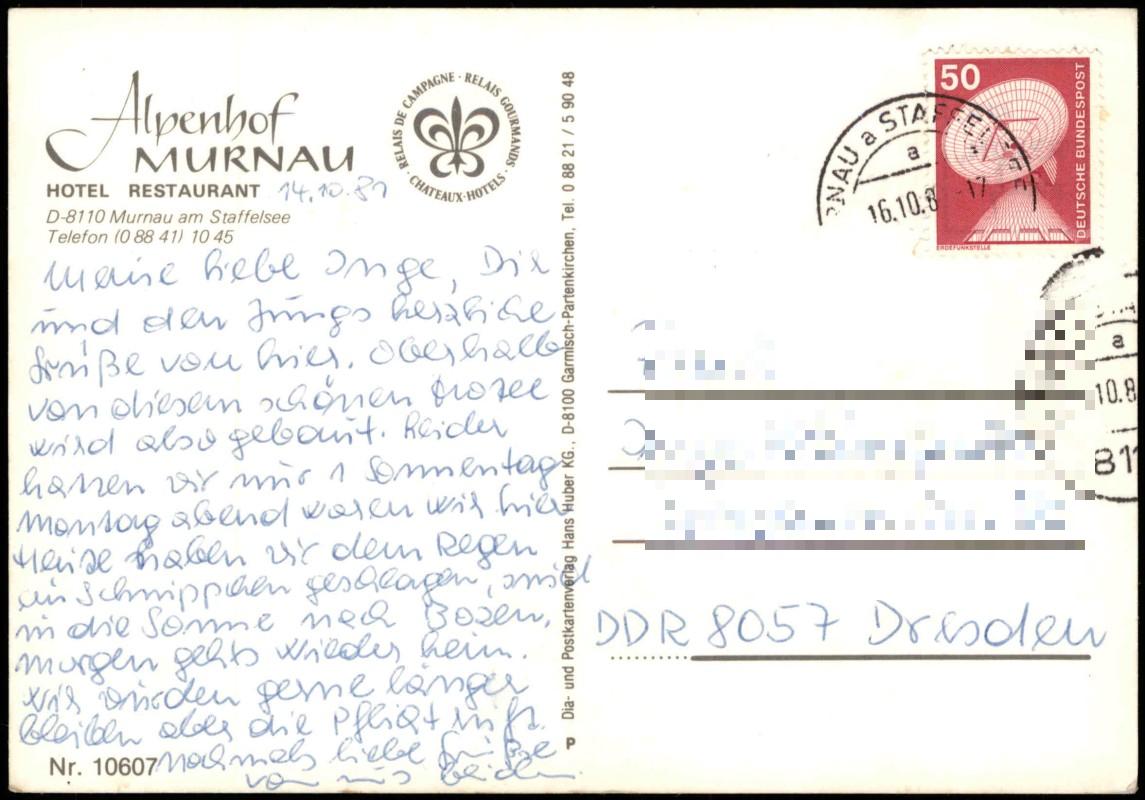 Alpenhof
MURNAU
HOTEL RESTAURANT 14.10.81
D-8110 Murnau am Staffelsee
Telefon (0 88 41) 10 45
RELAIS DE CAMPAGNE · RELAIS GOURMANDS · CHATEAUX-HOTELS ·
Meine liebe Inge, Dir
und den Jungs herzliche
Grüße von hier. Oberhalb
von diesem schönen Hotel
wird also gebaut. Leider
hatten wir nur 1 Sonnentag
Montag abend waren wir hier
Heute haben wir dem Regen
ein Schnippchen geschlagen, sind
in die Sonne nach Bozen,
morgen gehts wieder heim.
Wir würden gerne länger
bleiben aber die Pflicht ruft.
Nochmals liebe Grüße
von uns beiden
Nr. 10607
Dia- und Postkartenverlag Hans Huber KG., D-8100 Garmisch-Partenkirchen, Tel. 0 88 21 / 5 90 48
P
50
DEUTSCHE BUNDESPOST
ERDEFUNKSTELLE
RNAU a STAFFELSEE
a
16.10.8 -17
a
10.8
811
DDR 8057 Dresden